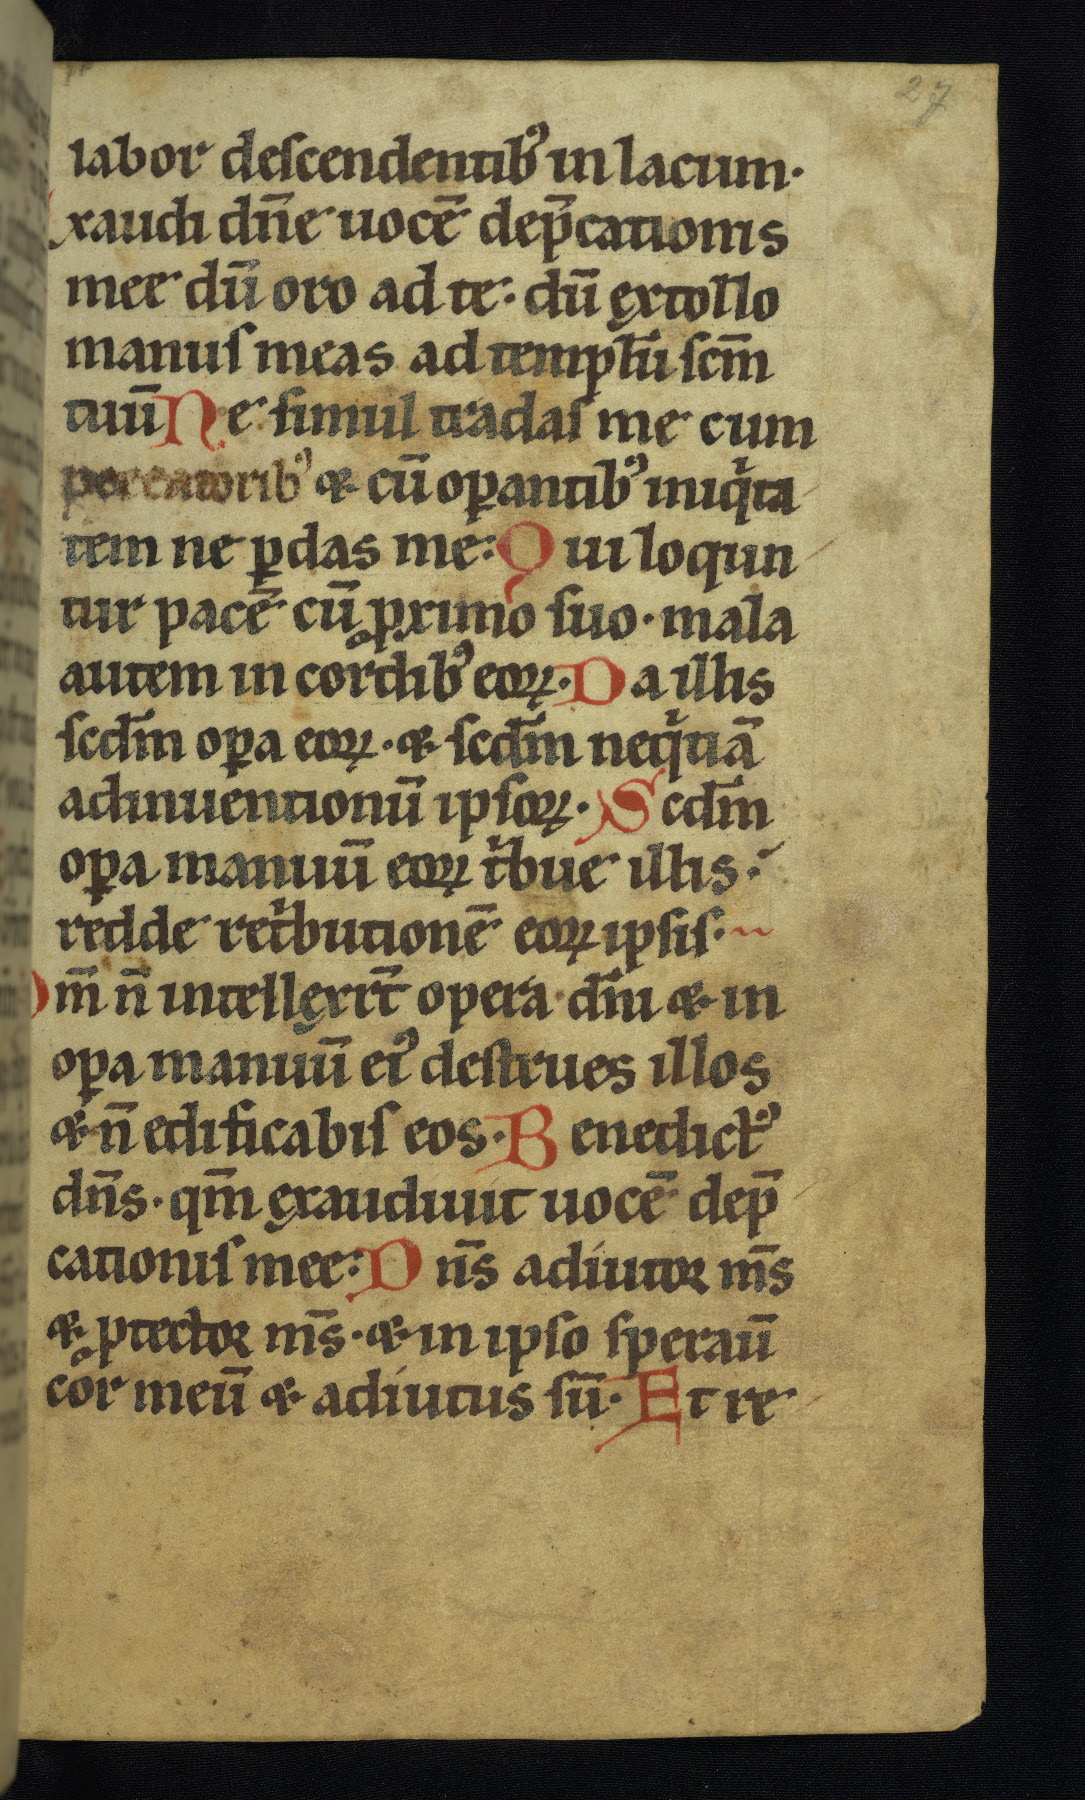 27
labor descendentibꝰ in lacum·
Exaudi dn̄e uocē dep̄cationis
mee dū oro ad te: dū extollo
manus meas ad templū scm̄
tuū Ne simul tradas me cum
peccatoribꝰ & cū oꝑantibꝰ iniqͥta
tem ne ꝑdas me: Qui loqun
tur pacē cū ꝓximo suo· mala
autem in cordibꝰ eoꝝ· Da illis
scdm̄ oꝑa eoꝝ· & scdm̄ neqͥtiā
adinuentionū ipsoꝝ· Scdm̄
oꝑa manuū eoꝝ tͥbue illis·
redde retͥbutionē eoꝝ ipsis·
Qm̄ n̄ intellexer̄t opera dn̄i & in
oꝑa manuū eiꝰ destrues illos
& n̄ edificabis eos· Benedictꝰ
dn̄s· qm̄ exaudiuit uocē dep̄
cationis mee: Dn̄s adiutor m̄s
& ꝓtector m̄s· & in ipso speraū
cor meū & adiutus sū· Et re